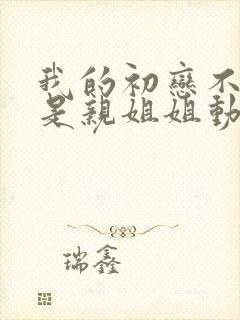 我的初戀不
是親姐姐動
瑞鑫